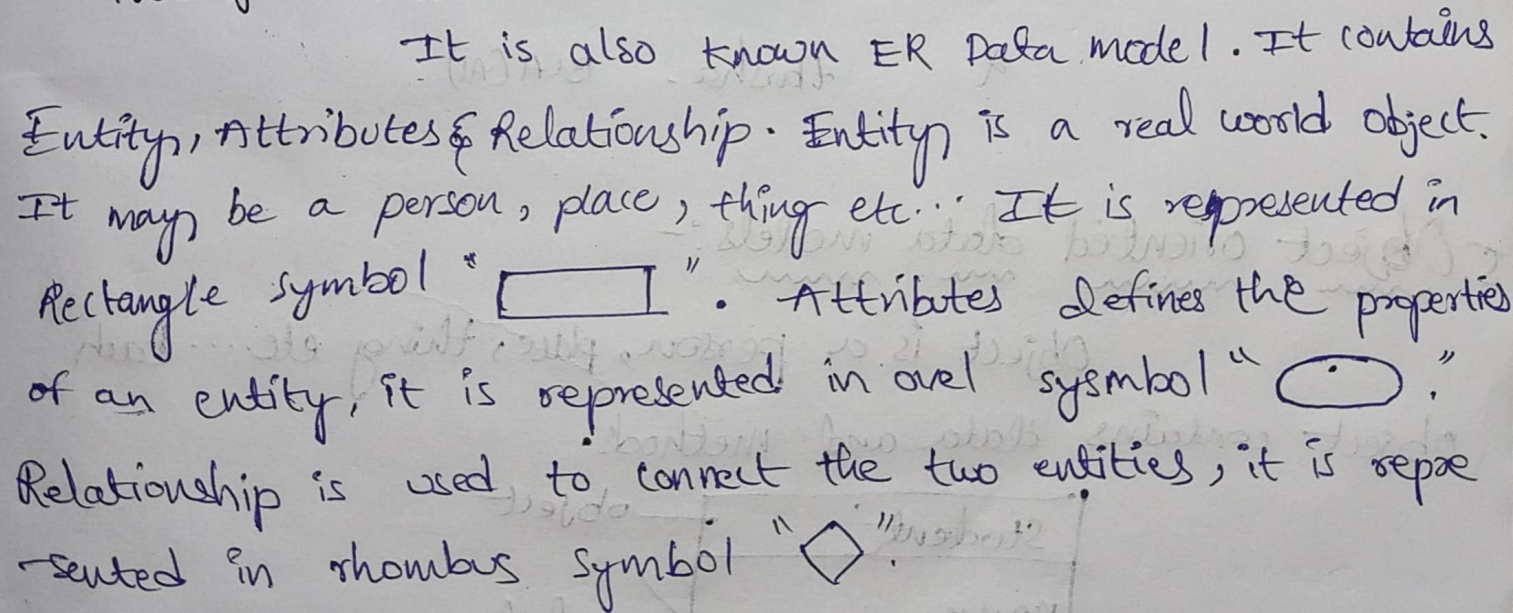 It is also known ER Data model. It contains
Entity, Attributes & Relationship. Entity is a real world object.
It may be a person, place, thing etc... It is represented in
Rectangle symbol " ". Attributes defines the properties
of an entity, it is represented in ovel sysmbol " ."
Relationship is used to connect the two entities, it is repre
-sented in rhombus symbol " ".